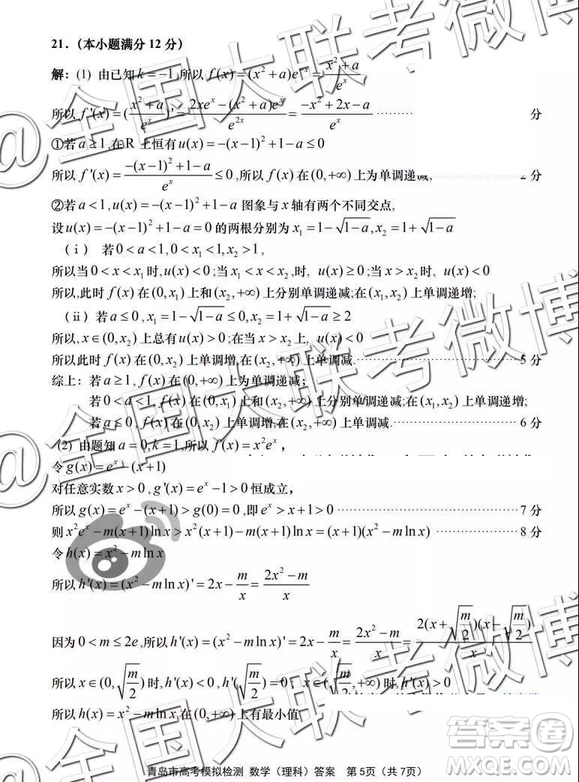 21.（本小题满分 12 分）
解：(1) 由已知 k = -1, 所以 f(x) = (x² + a)e⁻ˣ = (x² + a)/eˣ
所以 f'(x) = ((x² + a)/eˣ)' = (2xeˣ - (x² + a)eˣ)/e²ˣ = (-x² + 2x - a)/eˣ ········· 分
①若 a ≥ 1, 在 R 上恒有 u(x) = -(x-1)² + 1 - a ≤ 0
所以 f'(x) = (-(x-1)² + 1 - a)/eˣ ≤ 0, 所以 f(x) 在 (0,+∞) 上为单调递减, 2 分
②若 a < 1, u(x) = -(x-1)² + 1 - a 图象与 x 轴有两个不同交点,
设 u(x) = -(x-1)² + 1 - a = 0 的两根分别为 x₁ = 1 - √(1-a), x₂ = 1 + √(1-a)
（ⅰ） 若 0 < a < 1, 0 < x₁ < 1, x₂ > 1,
所以当 0 < x < x₁ 时, u(x) < 0; 当 x₁ < x < x₂ 时, u(x) ≥ 0; 当 x > x₂ 时, u(x) < 0
所以, 此时 f(x) 在 (0, x₁) 上和 (x₂, +∞) 上分别单调递减; 在 (x₁, x₂) 上单调递增;
（ⅱ）若 a ≤ 0, x₁ = 1 - √(1-a) ≤ 0, x₂ = 1 + √(1-a) ≥ 2
所以, x ∈ (0, x₂) 上总有 u(x) > 0; 在当 x > x₂ 时, u(x) < 0
所以此时 f(x) 在 (0, x₂) 上单调增, 在 (x₂, +∞) 上单调减. ········· 5 分
综上：若 a ≥ 1, f(x) 在 (0,+∞) 上为单调递减;
若 0 < a < 1, f(x) 在 (0, x₁) 上和 (x₂, +∞) 上分别单调递减; 在 (x₁, x₂) 上单调递增;
若 a ≤ 0, f(x) 在 (0, x₂) 上单调增, 在 (x₂, +∞) 上单调减. ········· 6 分
(2) 由题知 a = 0, k = 1, 所以 f(x) = x²eˣ,
令 g(x) = eˣ - (x+1)
对任意实数 x > 0, g'(x) = eˣ - 1 > 0 恒成立,
所以 g(x) = eˣ - (x+1) > g(0) = 0, 即 eˣ > x + 1 > 0 ········· 7 分
则 x²eˣ - m(x+1)ln x > x²(x+1) - m(x+1)ln x = (x+1)(x² - m ln x) ········· 8 分
令 h(x) = x² - m ln x
所以 h'(x) = (x² - m ln x)' = 2x - m/x = (2x² - m)/x
因为 0 < m ≤ 2e, 所以 h'(x) = (x² - m ln x)' = 2x - m/x = (2x² - m)/x = 2(x + √(m/2))(x - √(m/2))/x
所以 x ∈ (0, √(m/2)) 时, h'(x) < 0, h'(√(m/2)) = 0 当 x ∈ (√(m/2), +∞) 时, h'(x) > 0
所以 h(x) = x² - m ln x 在 (0,+∞) 上有最小值
青岛市高考模拟检测 数学（理科）答案 第 5 页（共 7 页）
@全国大联考微博
答案圈